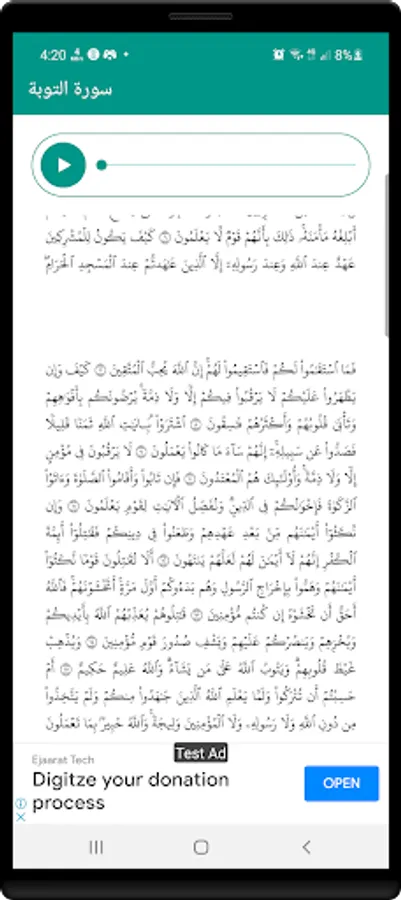 4:20
8%
سورة التوبة
أَبْلِغْهُ مَأْمَنَهُۥ ذَٰلِكَ بِأَنَّهُمْ قَوْمٌ لَّا يَعْلَمُونَ ۝ كَيْفَ يَكُونُ لِلْمُشْرِكِينَ
عَهْدٌ عِندَ ٱللَّهِ وَعِندَ رَسُولِهِۦٓ إِلَّا ٱلَّذِينَ عَٰهَدتُّمْ عِندَ ٱلْمَسْجِدِ ٱلْحَرَامِ
فَمَا ٱسْتَقَٰمُوا۟ لَكُمْ فَٱسْتَقِيمُوا۟ لَهُمْ إِنَّ ٱللَّهَ يُحِبُّ ٱلْمُتَّقِينَ ۝ كَيْفَ وَإِن
يَظْهَرُوا۟ عَلَيْكُمْ لَا يَرْقُبُوا۟ فِيكُمْ إِلًّا وَلَا ذِمَّةً يُرْضُونَكُم بِأَفْوَٰهِهِمْ
وَتَأْبَىٰ قُلُوبُهُمْ وَأَكْثَرُهُمْ فَٰسِقُونَ ۝ ٱشْتَرَوْا۟ بِـَٔايَٰتِ ٱللَّهِ ثَمَنًا قَلِيلًا
فَصَدُّوا۟ عَن سَبِيلِهِۦٓ إِنَّهُمْ سَآءَ مَا كَانُوا۟ يَعْمَلُونَ ۝ لَا يَرْقُبُونَ فِى مُؤْمِنٍ
إِلًّا وَلَا ذِمَّةً وَأُو۟لَٰٓئِكَ هُمُ ٱلْمُعْتَدُونَ ۝ فَإِن تَابُوا۟ وَأَقَامُوا۟ ٱلصَّلَوٰةَ وَءَاتَوُا۟
ٱلزَّكَوٰةَ فَإِخْوَٰنُكُمْ فِى ٱلدِّينِ وَنُفَصِّلُ ٱلْـَٔايَٰتِ لِقَوْمٍ يَعْلَمُونَ ۝ وَإِن
نَّكَثُوٓا۟ أَيْمَٰنَهُم مِّنۢ بَعْدِ عَهْدِهِمْ وَطَعَنُوا۟ فِى دِينِكُمْ فَقَٰتِلُوٓا۟ أَئِمَّةَ
ٱلْكُفْرِ إِنَّهُمْ لَآ أَيْمَٰنَ لَهُمْ لَعَلَّهُمْ يَنتَهُونَ ۝ أَلَا تُقَٰتِلُونَ قَوْمًا نَّكَثُوٓا۟
أَيْمَٰنَهُمْ وَهَمُّوا۟ بِإِخْرَاجِ ٱلرَّسُولِ وَهُم بَدَءُوكُمْ أَوَّلَ مَرَّةٍ أَتَخْشَوْنَهُمْ فَٱللَّهُ
أَحَقُّ أَن تَخْشَوْهُ إِن كُنتُم مُّؤْمِنِينَ ۝ قَٰتِلُوهُمْ يُعَذِّبْهُمُ ٱللَّهُ بِأَيْدِيكُمْ
وَيُخْزِهِمْ وَيَنصُرْكُمْ عَلَيْهِمْ وَيَشْفِ صُدُورَ قَوْمٍ مُّؤْمِنِينَ ۝ وَيُذْهِبْ
غَيْظَ قُلُوبِهِمْ وَيَتُوبُ ٱللَّهُ عَلَىٰ مَن يَشَآءُ وَٱللَّهُ عَلِيمٌ حَكِيمٌ ۝ أَمْ
حَسِبْتُمْ أَن تُتْرَكُوا۟ وَلَمَّا يَعْلَمِ ٱللَّهُ ٱلَّذِينَ جَٰهَدُوا۟ مِنكُمْ وَلَمْ يَتَّخِذُوا۟
مِن دُونِ ٱللَّهِ وَلَا رَسُولِهِۦ وَلَا ٱلْمُؤْمِنِينَ وَلِيجَةً وَٱللَّهُ خَبِيرٌۢ بِمَا تَعْمَلُونَ
Test Ad
Ejaarat Tech
Digitze your donation
process
OPEN